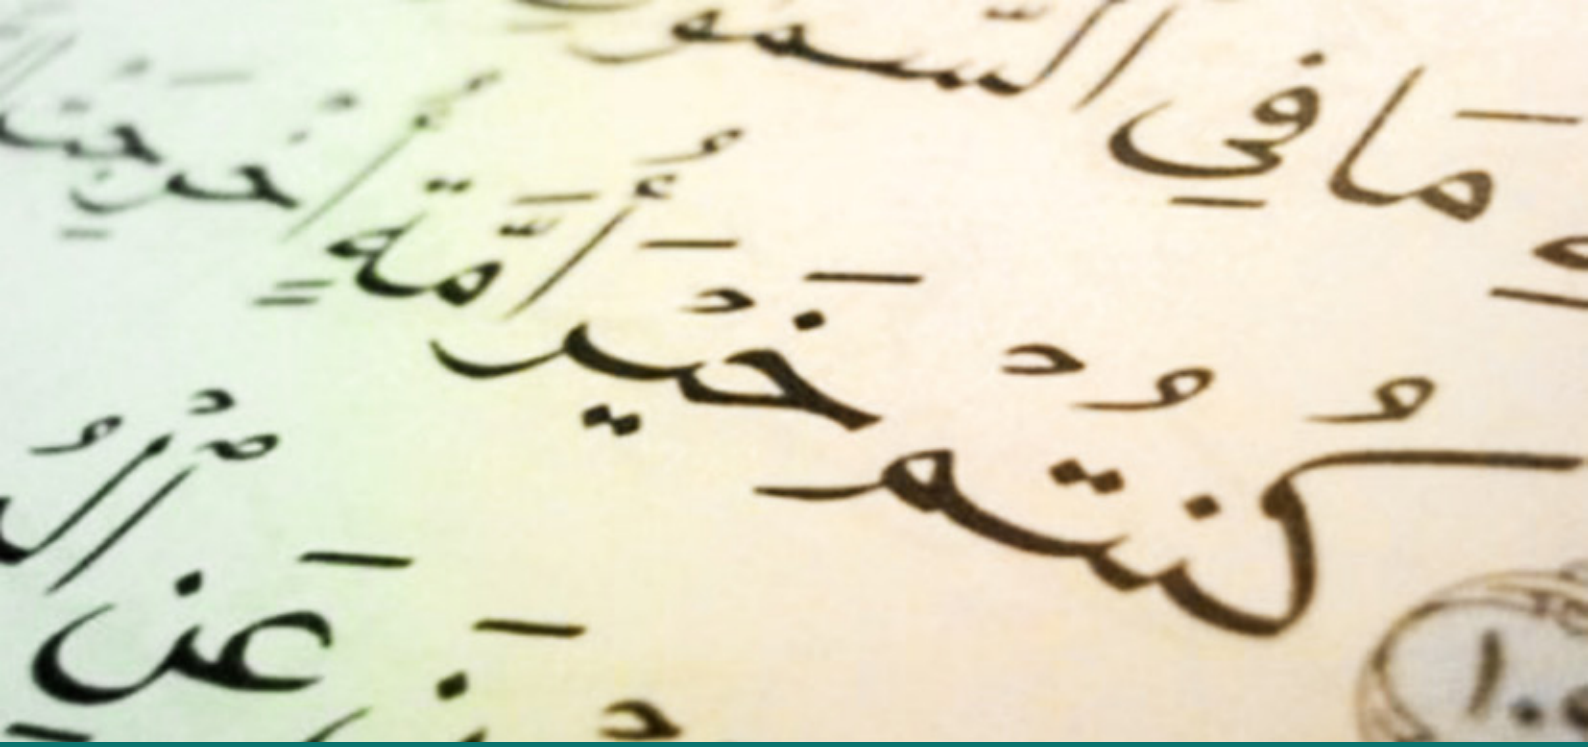 مَا فِي السَّمَٰوَ
كُنتُمْ خَيْرَ أُمَّةٍ أُخْرِجَتْ
عَنِ الْمُ